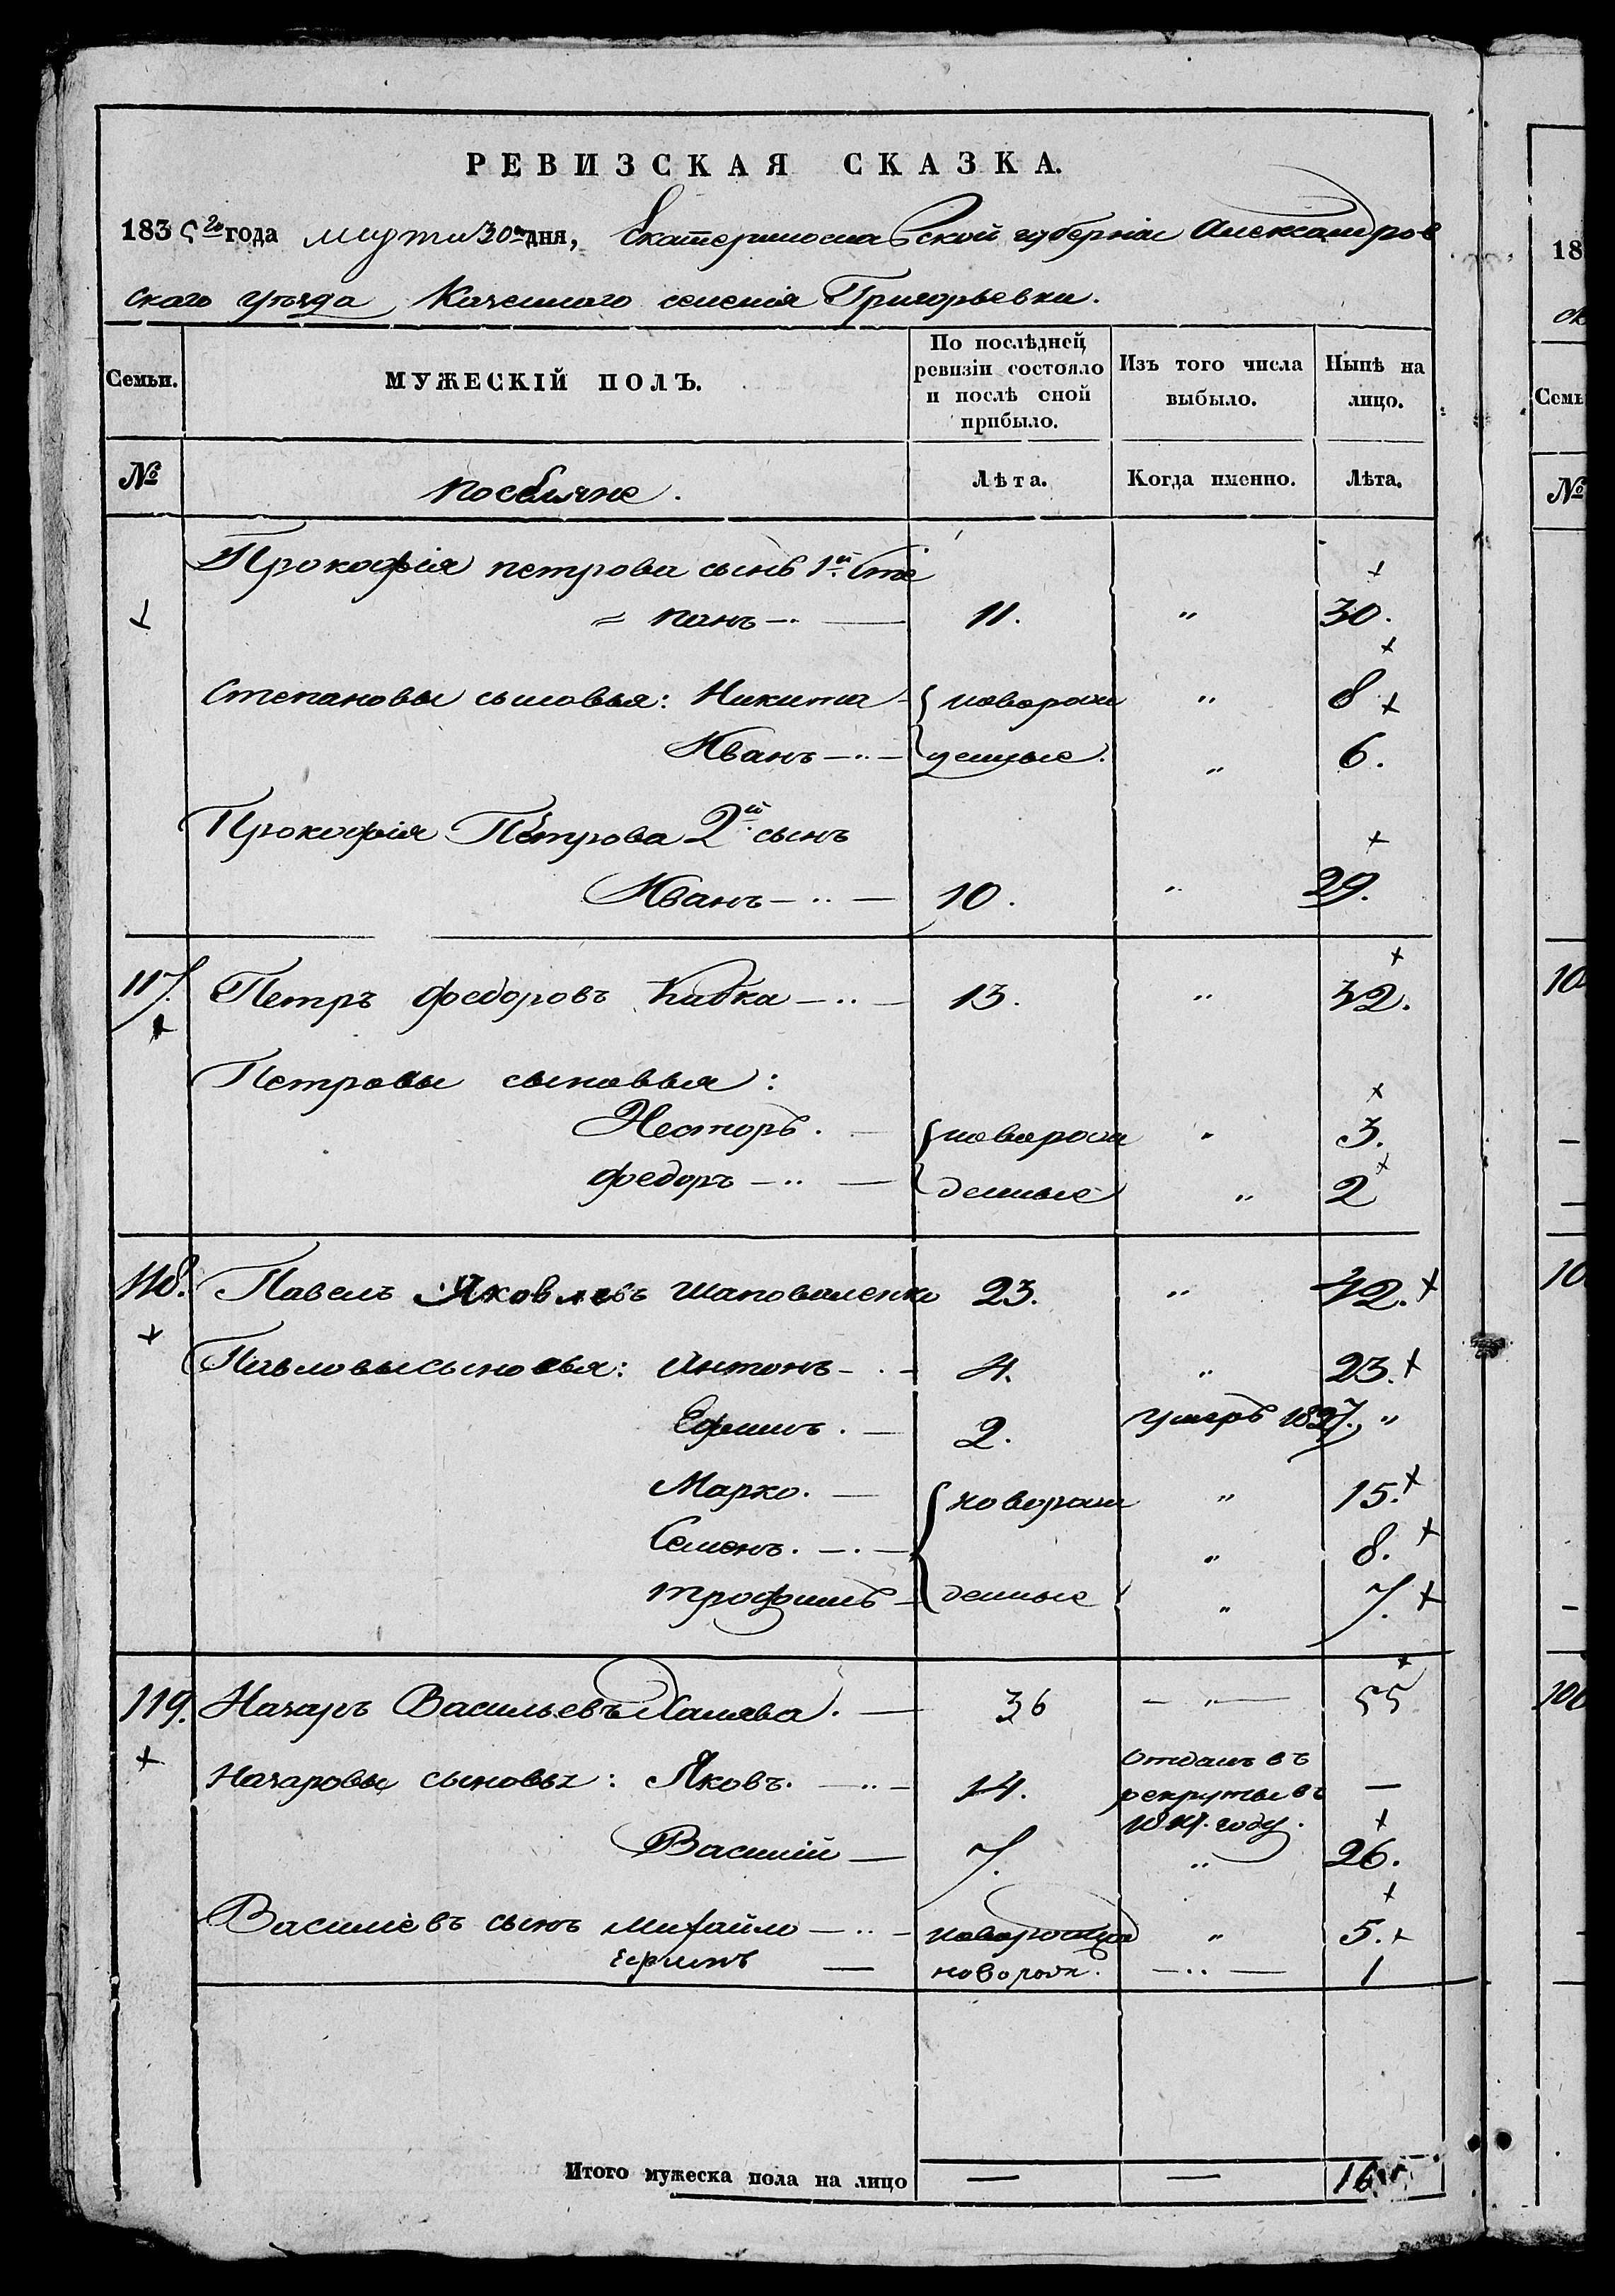 РЕВИЗСКАЯ СКАЗКА.
1835го года марта 30го дня, Екатеринославской губерніи Александров
скаго уѣзда, Казеннаго селенія Григорьевки.
Семьи. МУЖЕСКІЙ ПОЛЪ. По послѣдней ревизіи состояло и послѣ оной прибыло. Изъ того числа выбыло. Нынѣ на лицо.
№ поселяне. Лѣта. Когда именно. Лѣта.
Прокофія петрова сынъ 1й Сте
= панъ 11. " 30.
Степановы сыновья: Никита новорож " 8
Иванъ денные. " 6.
Прокофія Петрова 2й сынъ
Иванъ 10. " 29.
117. Петръ Федоровъ 13. " 32.
Петровы сыновья:
Несторъ. новорож " 3.
Федоръ денные " 2
118. Павелъ Яковлевъ Шаповаленко 23. " 42.
Павловы сыновья: Антонъ 4. " 23.
Ефимъ. 2. умеръ 1827. "
Марко. новорож " 15.
Семенъ. " 8.
Трофимъ денные " 7.
119. Назаръ Васильевъ Халява. 36 " 55
Назаровы сыновья: Яковъ. 14. отданъ въ рекруты въ году. —
Василій 7. " 26.
Василіевъ сынъ Михайло " 5.
Ефимъ новорож. " 1
Итого мужеска пола на лицо — —
18
ск
Семь
№